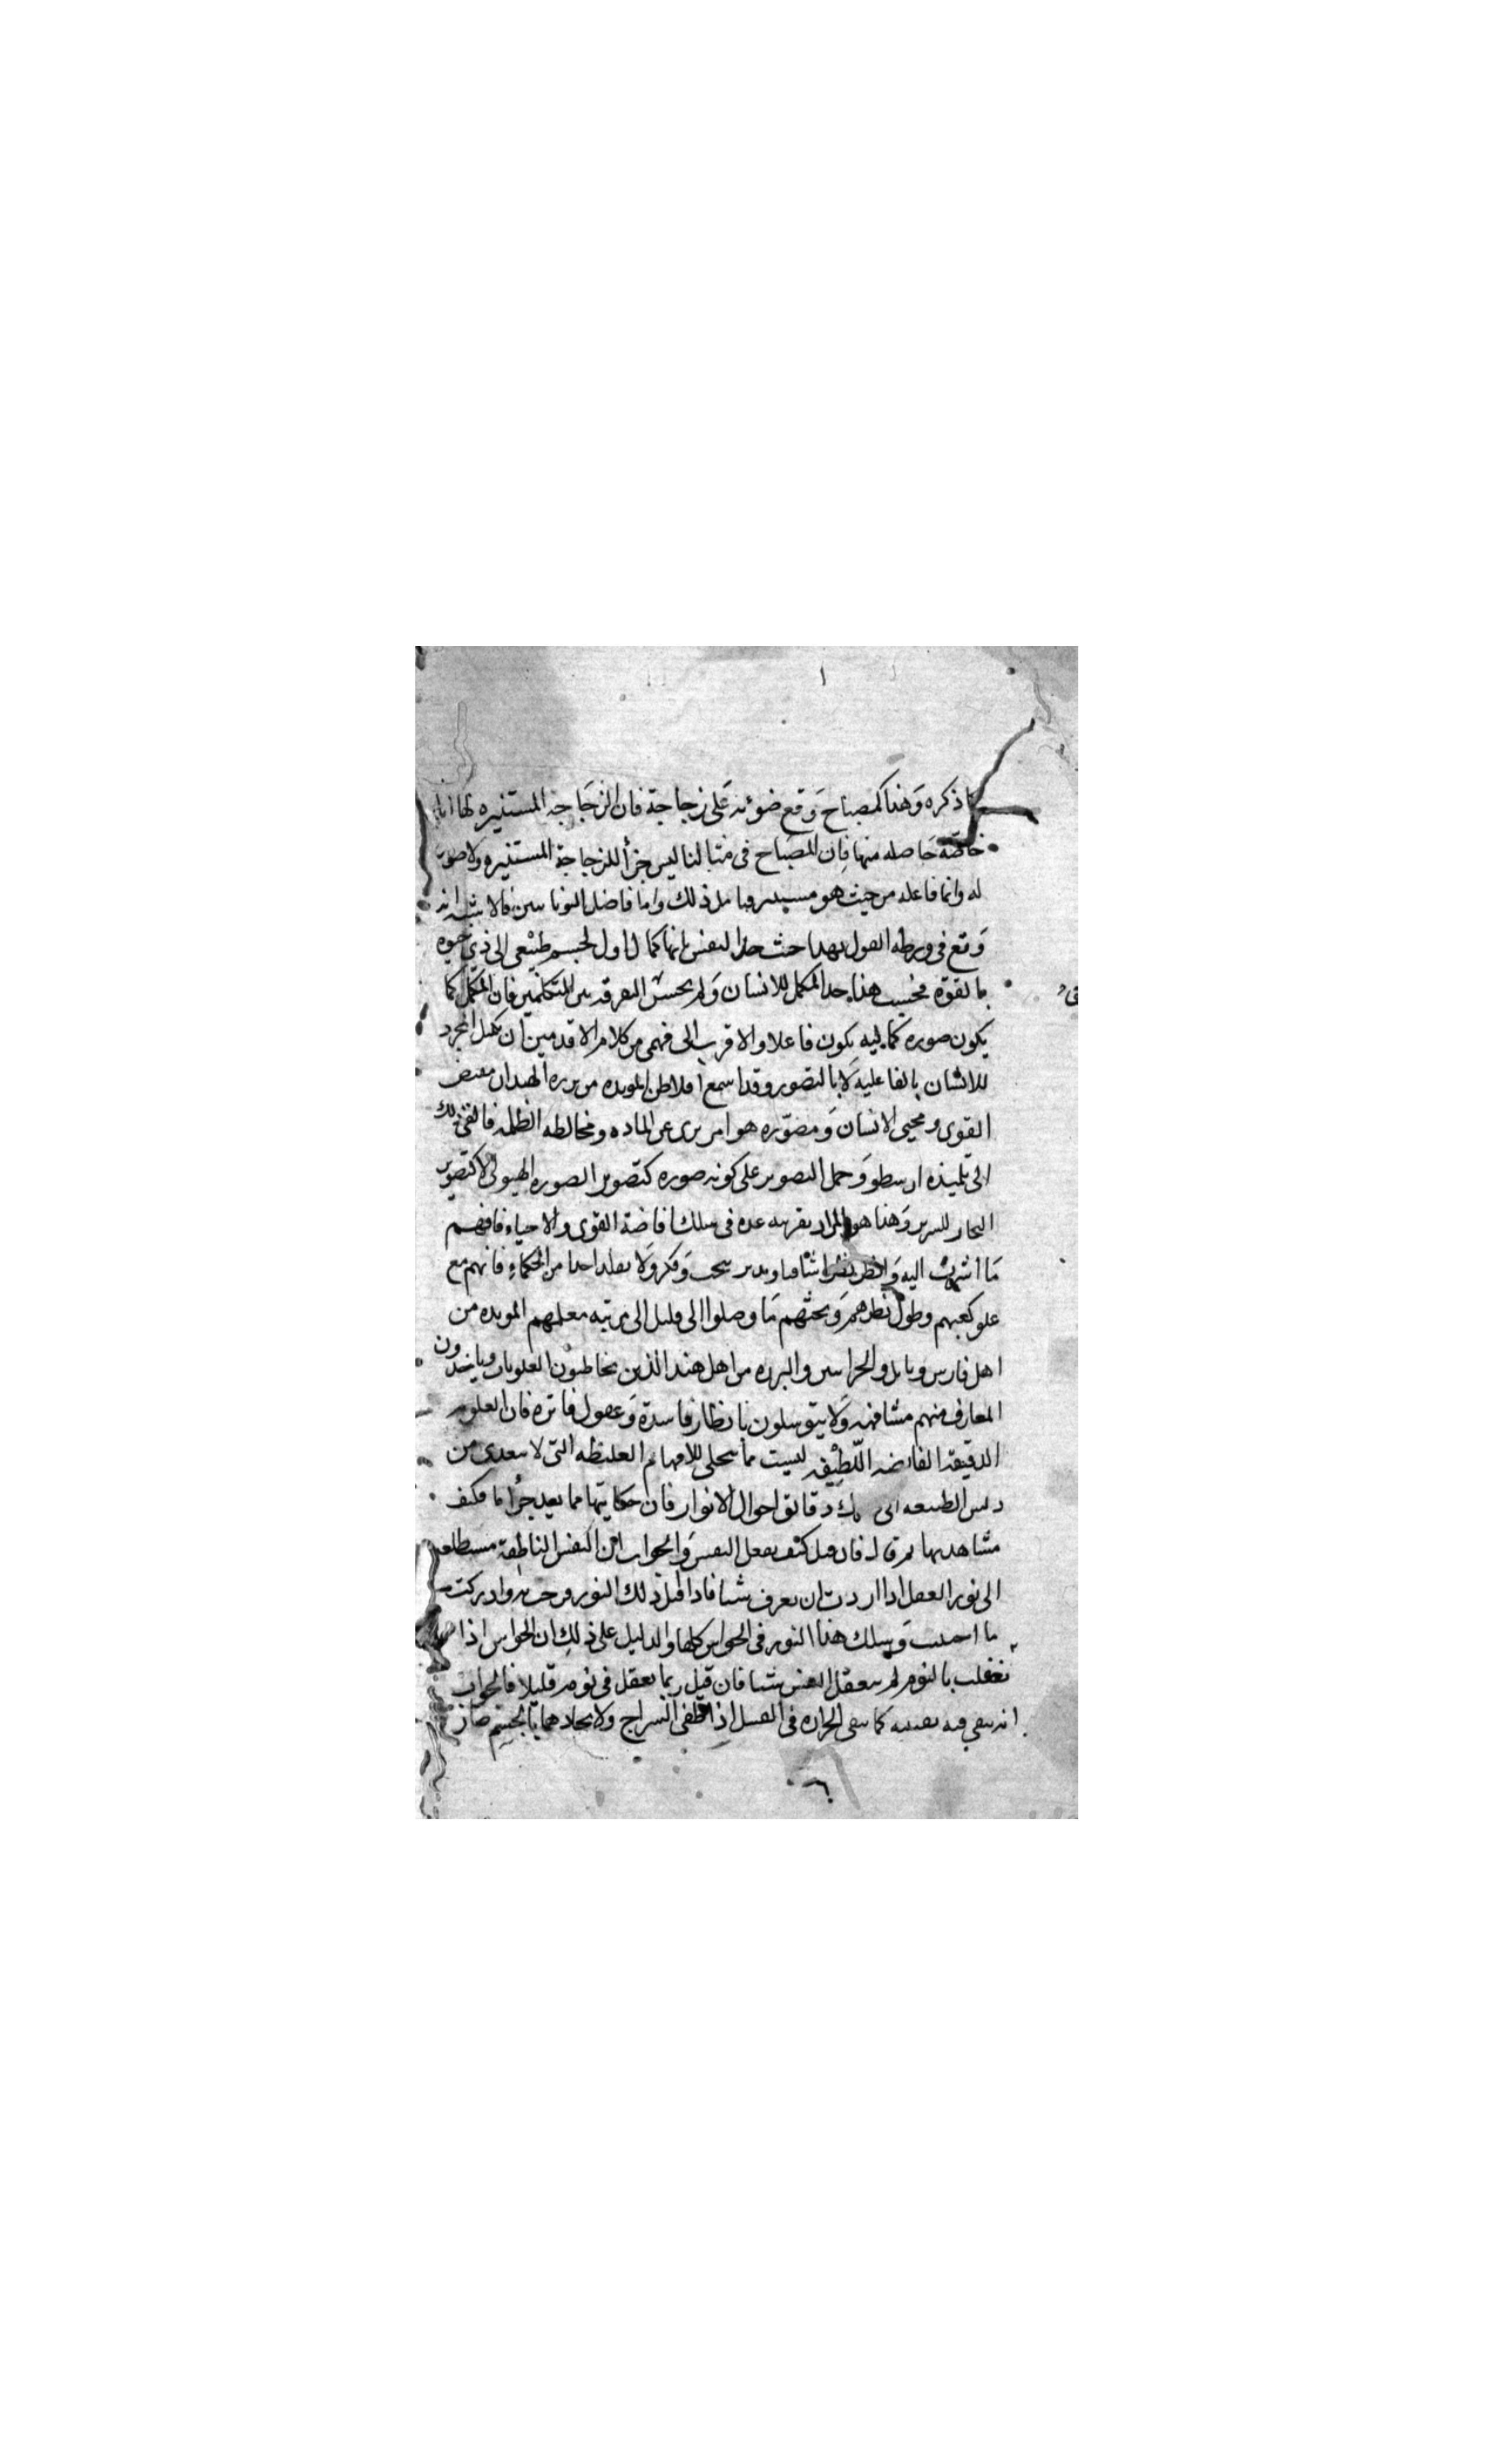 ذكره وهذا كمصباح وقع ضوئه على زجاجة فان الزجاجة المستنيره لها
خاصّة حاصله منها فان المصباح فى مثالنا ليس جزأ للزجاجة المستنيره ولا صورة
له وانما فاعله من حيث هو ذلك واما فاضل اليونانيين فالاشبه انه
وقع فى ورطه القول بهذا حيث حدّ النفس بانها كمال اول لجسم طبيعى الى ذى حيوة
بالقوّه فحسب هذا حد المكمل للانسان ولم يحسن التفرقه بين المتكلمين فان المكمّل كما
يكون صوره كماليه يكون فاعلا والاقرب الى فهمى من كلام الاقدمين ان مكمل المجرد
للانسان بالفاعليه لا بالتصور وقد اسمع افلاطن المويده من برره الهند ان مفيض
القوى ومحيى الانسان ومصوّره هو امر برى عن الماده ومخالطه الظلمه فالقى ذلك
الى تلميذه ارسطو وحمل التصوير على كونه صوره كتصوير الصوره الهيولى لا كتصوير
النجار للسرير وهذا هو المراد بقرينه عده فى سلك افاضة القوى والاحياء فافهم
ما اشرت اليه وانظر نظرا شافيا وتدبر بحب وفكر ولا تقلد احدا من الحكماء فانهم مع
علو كعبهم وطول نظرهم وبحثهم ما وصلوا الى قليل الى مرتبه معلمهم المويده من
اهل فارس وبابل والخراسين والبرره من اهل هند الذين يخاطبون العلويات وياخذون
المعارف منهم مشافهه ولا يتوسلون بانظار فاسدة وعقول فاتره فان العلوم
الدقيقه الفائضه اللّطيفه ليست مما يتجلى للافهام الغليظه التى لا تتعدى من
دنس الطبيعه الى دقائق احوال الانوار فان حكايتها مما يعد جرأ ما فكيف
مشاهدتها ثم قال فان قيل كيف تعقل النفس والجواب ان النفس الناطقة مستطلعه
الى نور العقل اذا اردت ان تعرف شيا فاذا اقبل ذلك النور وادركت
ما احبت وسلك هذا النور فى الحواس كلها والدليل على ذلك ان الحواس اذا
تعطلت بالنوم لم تتعقل النفس شيا فان قيل ربما تعقل فى نومه قليلا فالجواب
انه يبقى فيه بقيه كما تبقى الحراره فى الفتيل اذا طفى السراج ولا اتحادهما بالجسم صار